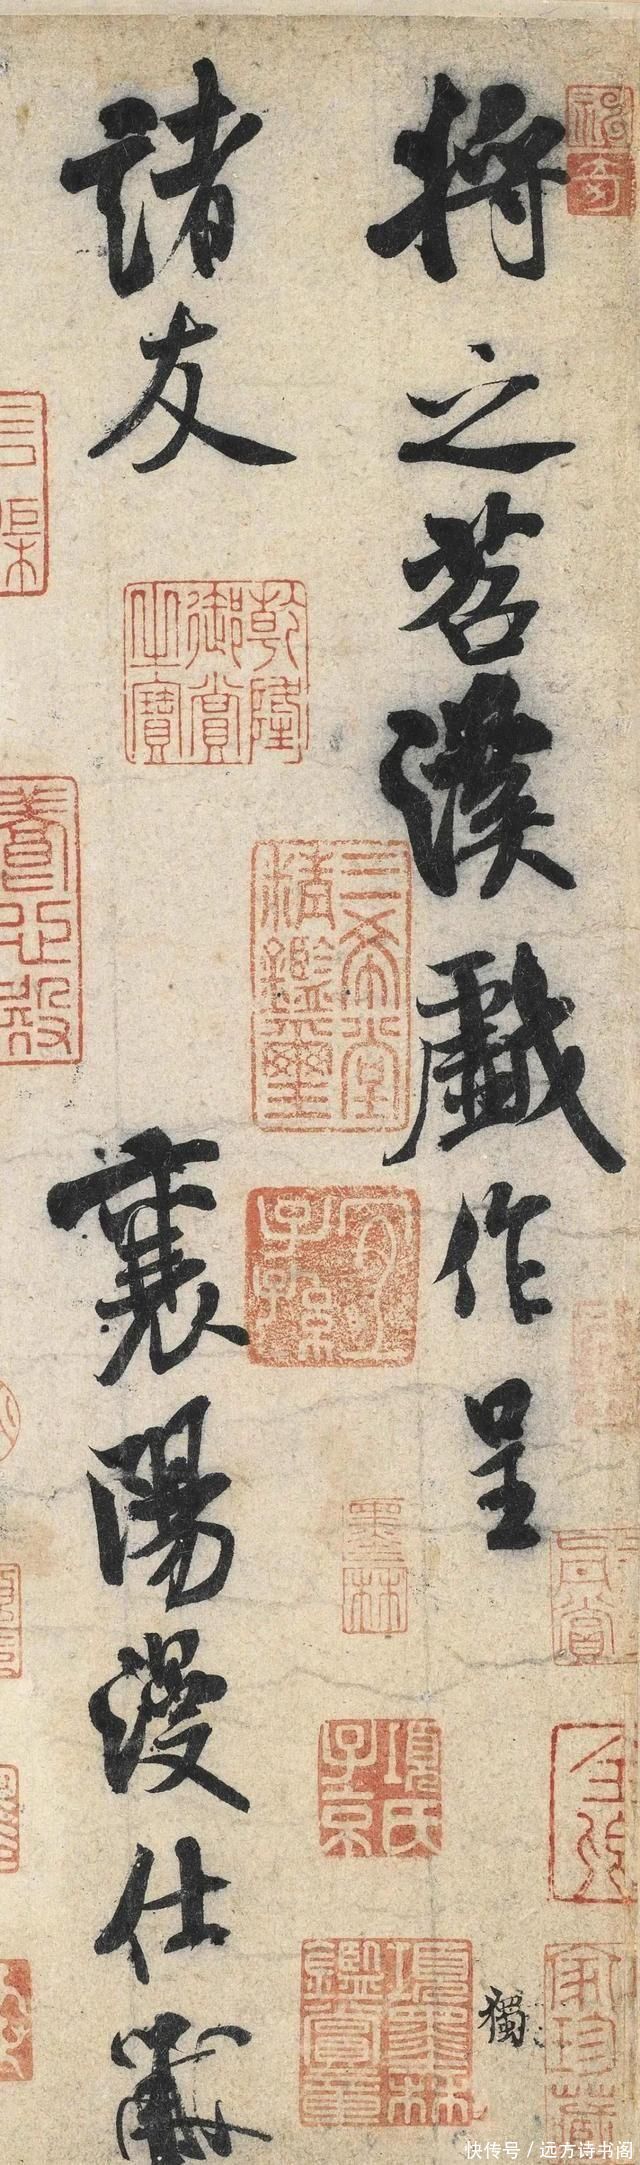 将之苕溪戲作呈
諸友
襄陽漫仕黻
獨
神
奇
乾隆
御賞
之寶
三希堂
精鑑璽
宜
子孫
墨林
項氏
子京
項墨林
鑑賞章
家珍藏
快传号／远方诗书阁